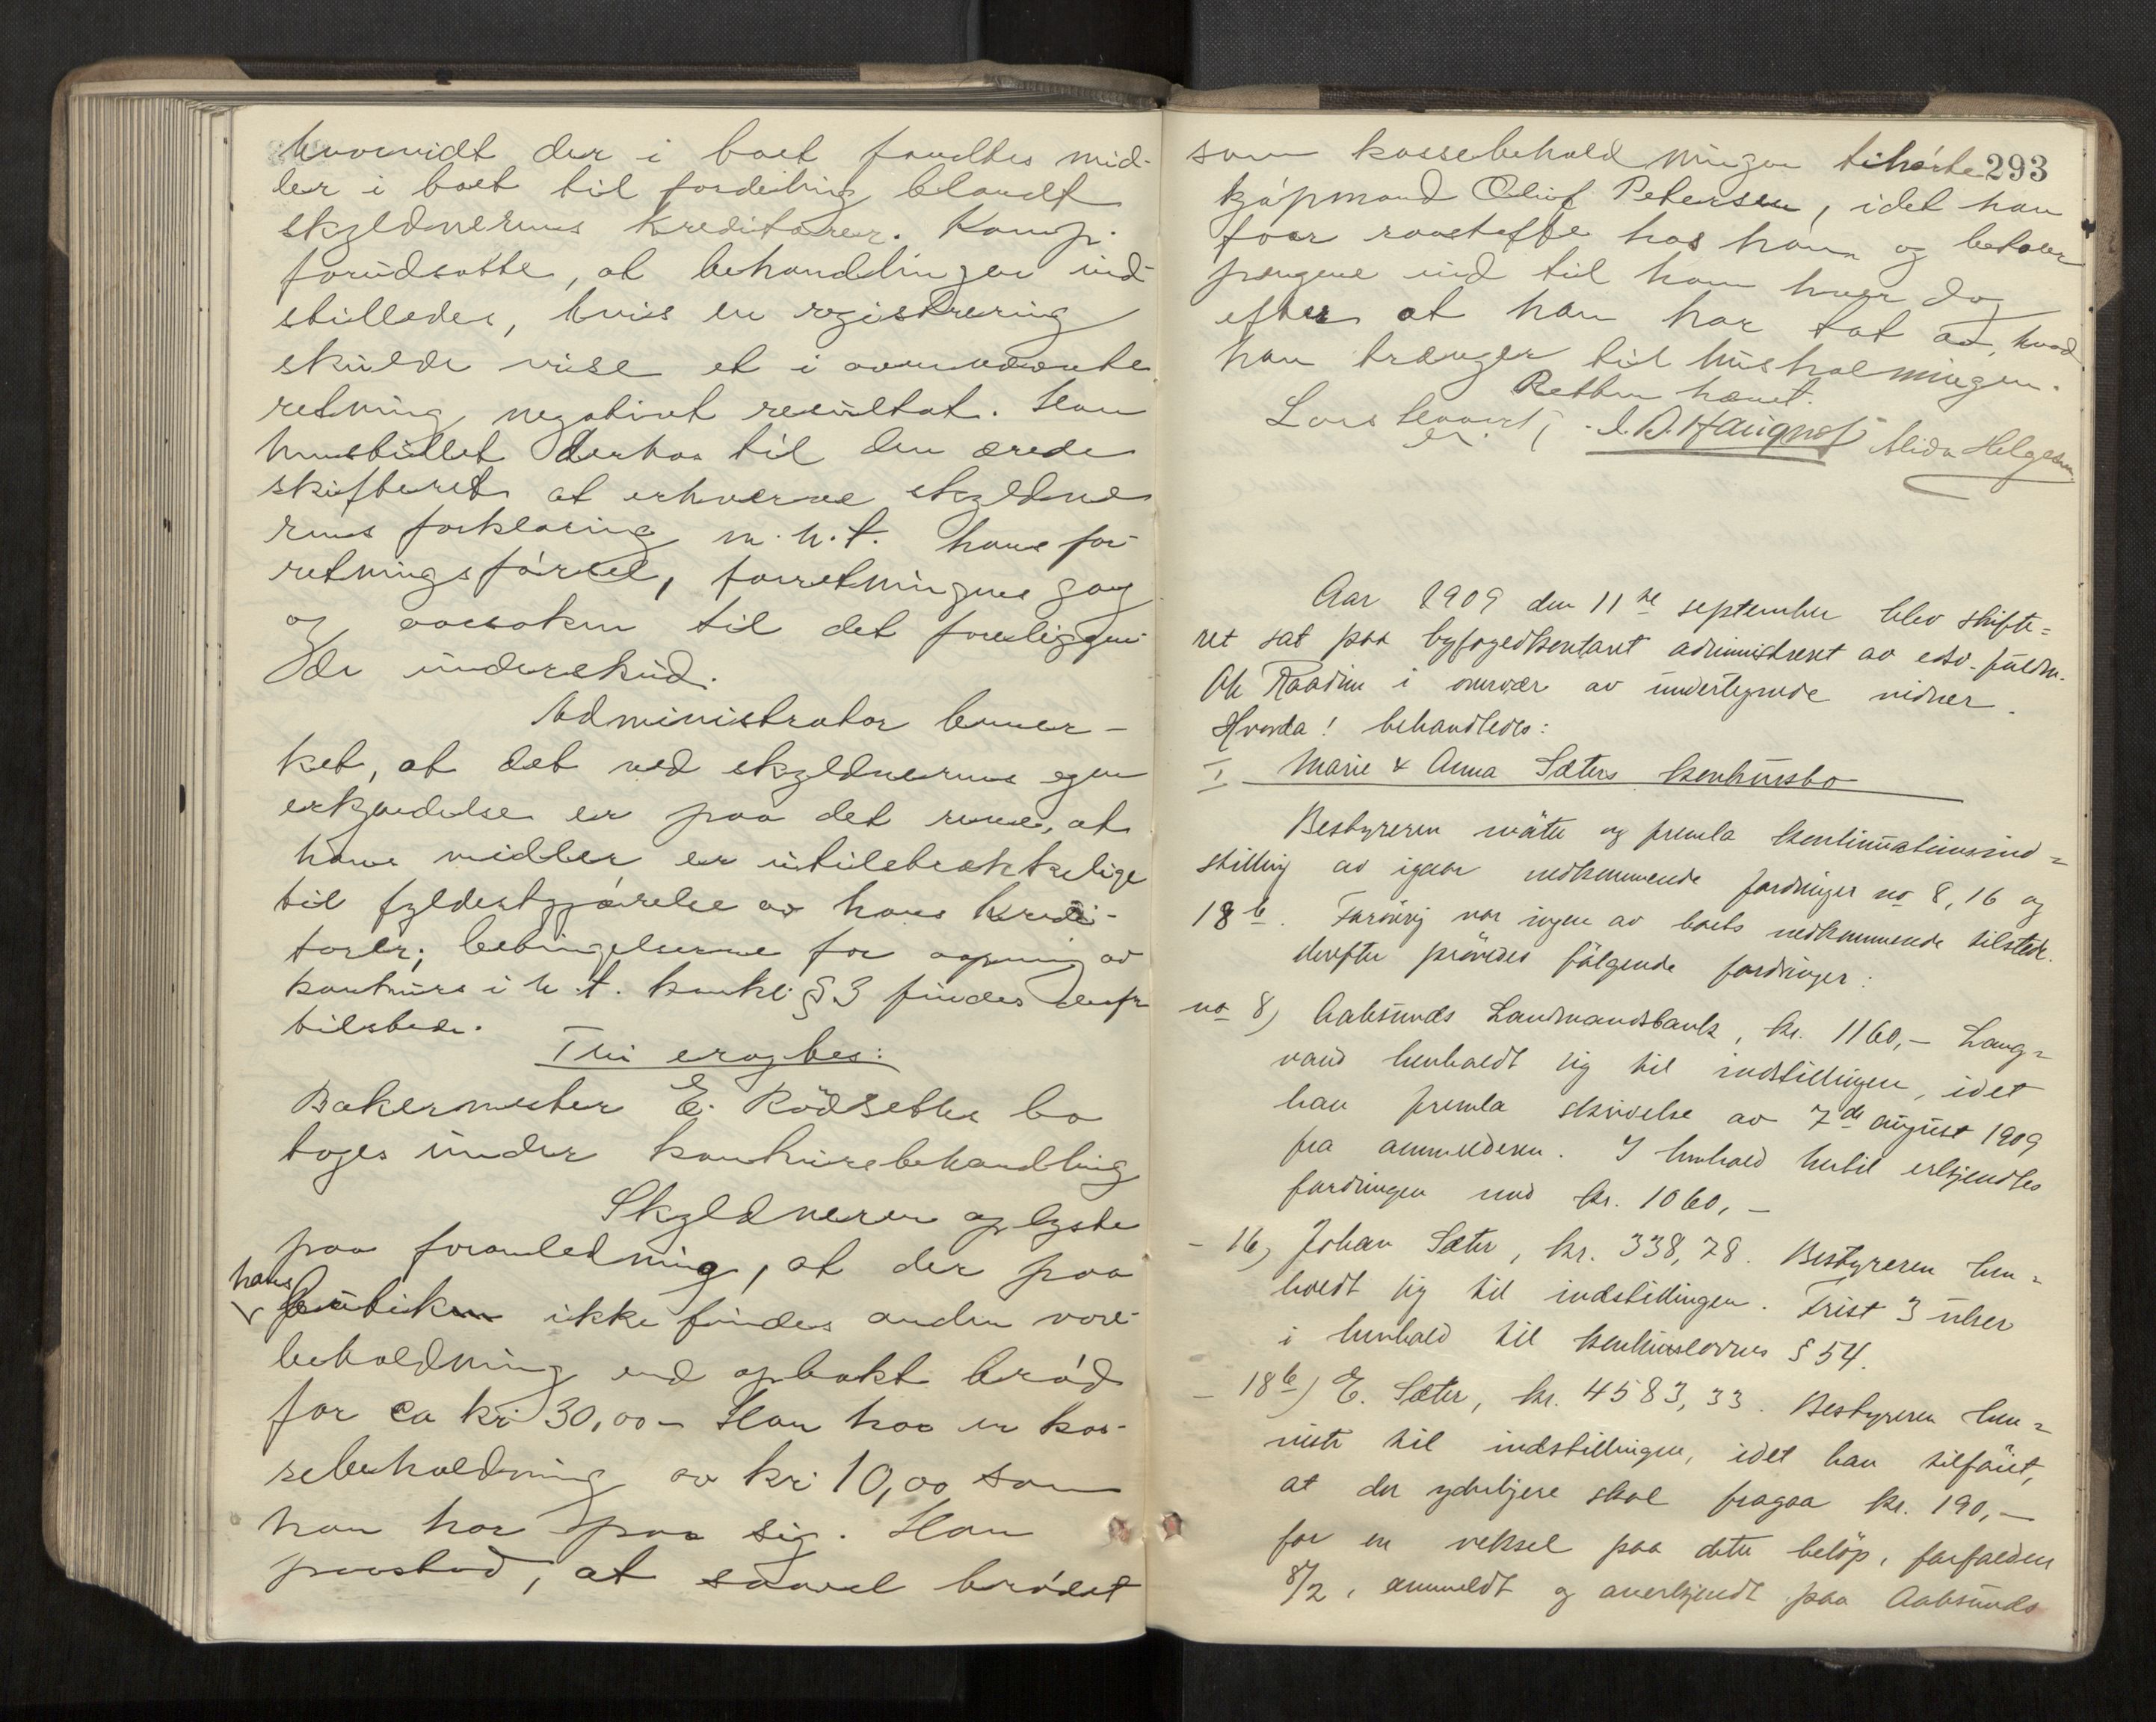 hvorvidt der i boet fandtes mid-
ler i boet til fordeling blandt
skyldnerens kreditorer. Komp.
forudsatte, at behandlingen ind-
stilledes, hvis en registrering
skulde vise et i ovennævnte
retning negativt resultat. Han
henstillet derhos til den ærede
skifteret at erhverve skyldne
rens forklaring m.h.t. hans for-
retningsførsel, forretningens gang
og aarsaken til det foreliggen-
de underskud.
Administrator bemer-
ket, at det ved skyldnerens egen
erkjendelse er paa det rene, at
hans midler er utilstrækkelige
til fyldestgjørelse av hans kredi-
torer; betingelserne for aapning av
konkurs i h.t. konkl. § 3 findes derfor
tilstede.
Thi eragtes:
Bakermester E. Rödseths bo
toges under konkursbehandling
Skyldneren oplyste
paa foranledning, at der paa
hans
butikken ikke findes anden vare-
beholdning end opbakt brød
for ca kr 30,00 – Han har en kas-
sebeholdning av kr 10,00 som
han har paa sig. Han
paastod, at saavel brødet
293
som kassebeholdningen tilhørte
kjøpmand Oluf Petersen, idet han
faar raastoffe hos ham og betaler
pengene ind til ham hver dag
efter at han har tat av, hvad
han trænger til husholdningen.
Retten hævet.
Alida Helgesen
Aar 1909 den 11te september blev skifte=
ret sat paa byfogedkontoret administreret av edsv. fuldm.
Ole Raadim i overvær av undertegnede vidner.
Hvorda! behandledes:
I Marie & Anna Sæters konkursbo
Bestyreren møtte og fremla kontinuationsind=
stilling av igaar vedkommende fordringer no 8, 16 og
18b. Forøvrig var ingen av boets vedkommende tilstede.
derefter prøvedes følgende fordringer:
no 8) Aalesunds Landmandsbank, kr. 1160,– Lang=
vand henholdt sig til indstillingen, idet
han fremla skrivelse av 7de august 1909
fra anmelderen. I henhold hertil erkjendtes
fordringen med kr. 1060,–
– 16) Johan Sæter, kr. 338,78. Bestyreren hen=
holdt sig til indstillingen. Frist 3 uker
i henhold til konkurslovens § 54.
– 18b) E. Sæter, kr. 4583,33. Bestyreren hen=
viste til indstillingen, idet han tilføiet,
at der yderligere skal fragaa kr. 190,–
for en veksel paa dette beløp, forfalden
8/2, anmeldt og anerkjendt paa Aalesunds